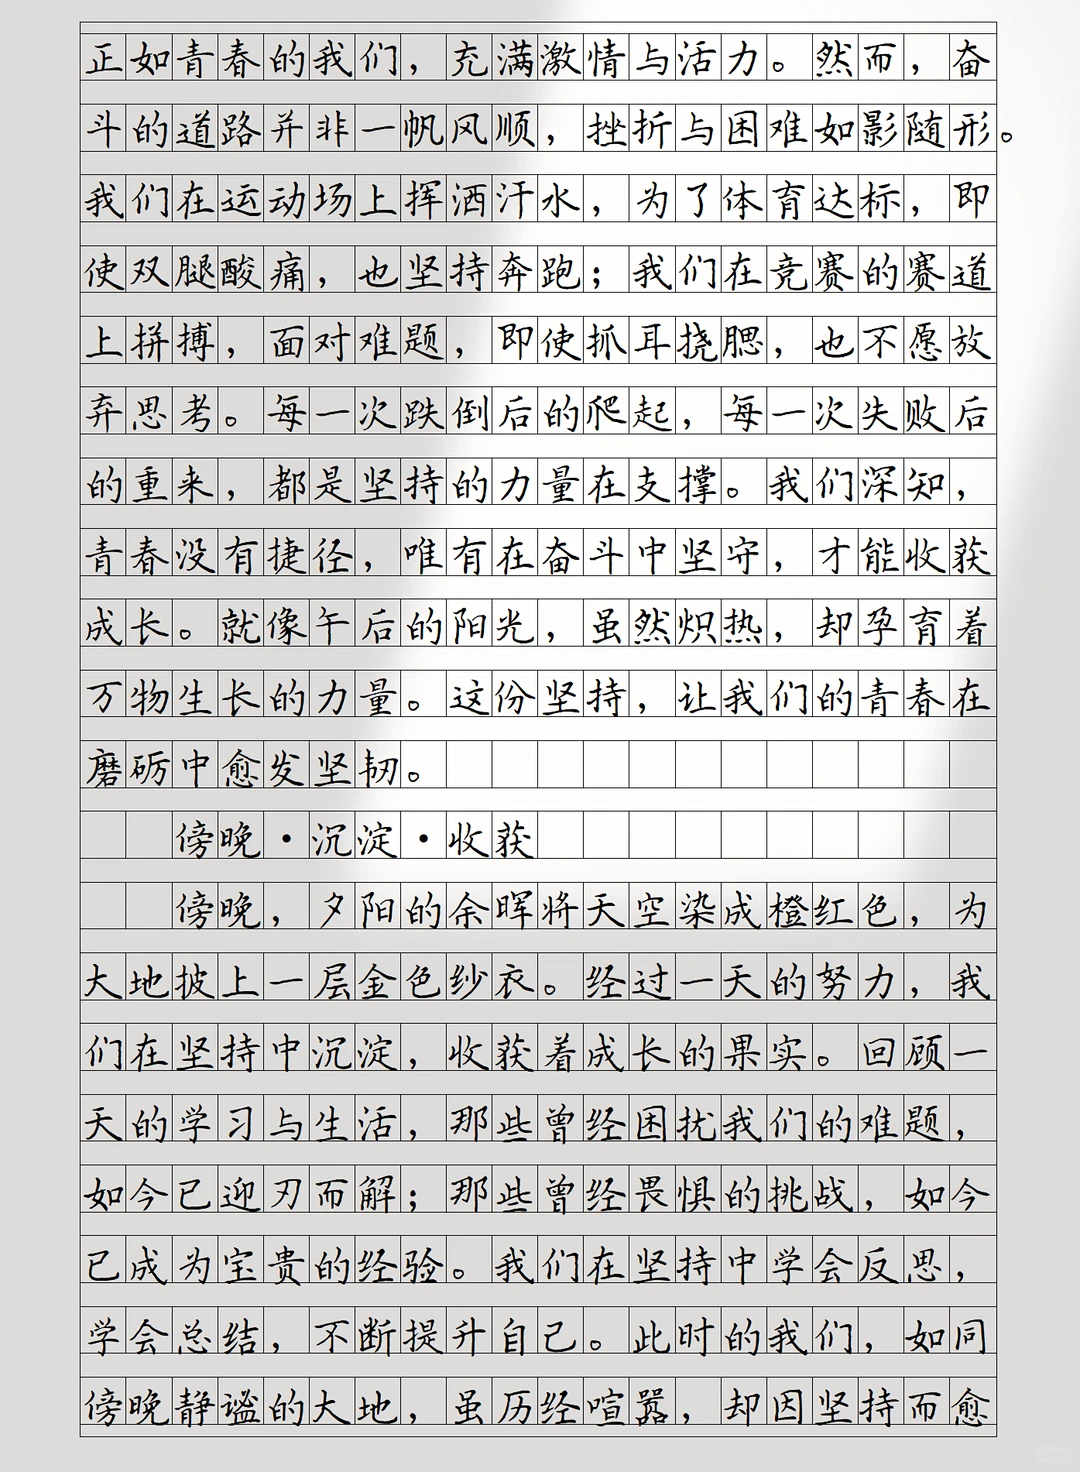 正如青春的我们，充满激情与活力。然而，奋
斗的道路并非一帆风顺，挫折与困难如影随形。
我们在运动场上挥洒汗水，为了体育达标，即
使双腿酸痛，也坚持奔跑；我们在竞赛的赛道
上拼搏，面对难题，即使抓耳挠腮，也不愿放
弃思考。每一次跌倒后的爬起，每一次失败后
的重来，都是坚持的力量在支撑。我们深知，
青春没有捷径，唯有在奋斗中坚守，才能收获
成长。就像午后的阳光，虽然炽热，却孕育着
万物生长的力量。这份坚持，让我们的青春在
磨砺中愈发坚韧。
傍晚·沉淀·收获
傍晚，夕阳的余晖将天空染成橙红色，为
大地披上一层金色纱衣。经过一天的努力，我
们在坚持中沉淀，收获着成长的果实。回顾一
天的学习与生活，那些曾经困扰我们的难题，
如今已迎刃而解；那些曾经畏惧的挑战，如今
已成为宝贵的经验。我们在坚持中学会反思，
学会总结，不断提升自己。此时的我们，如同
傍晚静谧的大地，虽历经喧嚣，却因坚持而愈